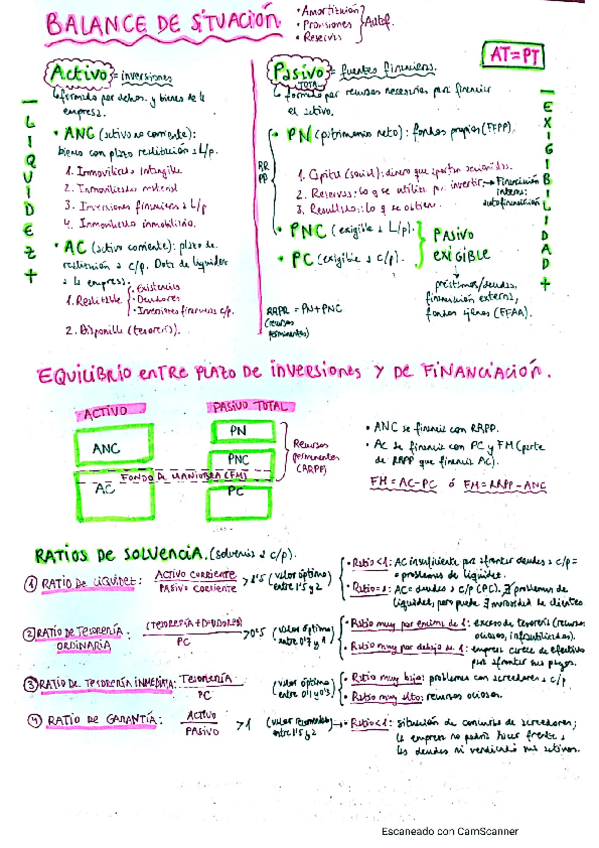 BALANCE DE SITUACIÓN
• Amortización
• Provisiones
• Reservas
Autof.
AT=PT
Activo = inversiones
↳ formado por dchos. y bienes de la
empresa.
• ANC (activo no corriente):
bienes con plazo realización a L/p.
1. Inmovilizado intangible
2. Inmovilizado material
3. Inversiones financieras a L/p
4. Inmovilizado inmobiliario.
• AC (activo corriente): plazo de
realización a c/p. Dota de liquidez
a la empresa:
1. Realizable
• Existencias
• Deudores
• Inversiones financieras c/p.
2. Disponible (tesorería).
- LIQUIDEZ +
Pasivo TOTAL = fuentes financieras.
↳ formado por recursos necesarios para financiar
el activo.
• PN (patrimonio neto): fondos propios (FFPP).
1. Capital (social): dinero que aportan accionistas.
2. Reservas: lo que se utiliza para invertir. → Financiación
interna:
autofinanciación
3. Resultados: lo que se obtiene.
RR
PP
• PNC (exigible a L/p).
• PC (exigible a c/p).
PASIVO
EXIGIBLE
↓
préstamos/deudas,
financiación externa,
fondos ajenos (FFAA).
RRPP = PN + PNC
(recursos
permanentes)
- EXIGIBILIDAD +
EQUILIBRIO ENTRE PLAZO DE INVERSIONES Y DE FINANCIACIÓN.
ACTIVO
PASIVO TOTAL
ANC
PN
PNC
FONDO DE MANIOBRA (FM)
AC
PC
Recursos
permanentes
• ANC se financia con RRPP.
• AC se financia con PC y FM (parte
de RRPP que financia AC).
FM = AC-PC ó FM = RRPP-ANC
RATIOS DE SOLVENCIA. (solvencia a c/p).
① RATIO DE LIQUIDEZ: ACTIVO CORRIENTE / PASIVO CORRIENTE > 1'5 (valor óptimo entre 1'5 y 2)
• Ratio <1: AC insuficiente para afrontar deudas a c/p =
= problemas de liquidez.
• Ratio = 1: AC = deudas a c/p (PC). ∄ problemas de
liquidez, pero puede ∃ morosidad de clientes
② RATIO DE TESORERÍA ORDINARIA: (TESORERÍA + DEUDORES) / PC > 0'5 (valor óptimo entre 0'5 y 1)
• Ratio muy por encima de 1: exceso de tesorería (recursos
ociosos, infrautilizados).
• Ratio muy por debajo de 1: empresa carece de efectivo
para afrontar sus pagos.
③ RATIO DE TESORERÍA INMEDIATA: TESORERÍA / PC (valor óptimo entre 0'1 y 0'3)
• Ratio muy bajo: problemas con acreedores a c/p
• Ratio muy alto: recursos ociosos.
④ RATIO DE GARANTÍA: ACTIVO / PASIVO > 1 (valor recomendado entre 1'5 y 2)
→ • Ratio <1: situación de concurso de acreedores;
la empresa no podría hacer frente a
las deudas ni vendiendo sus activos.
Escaneado con CamScanner